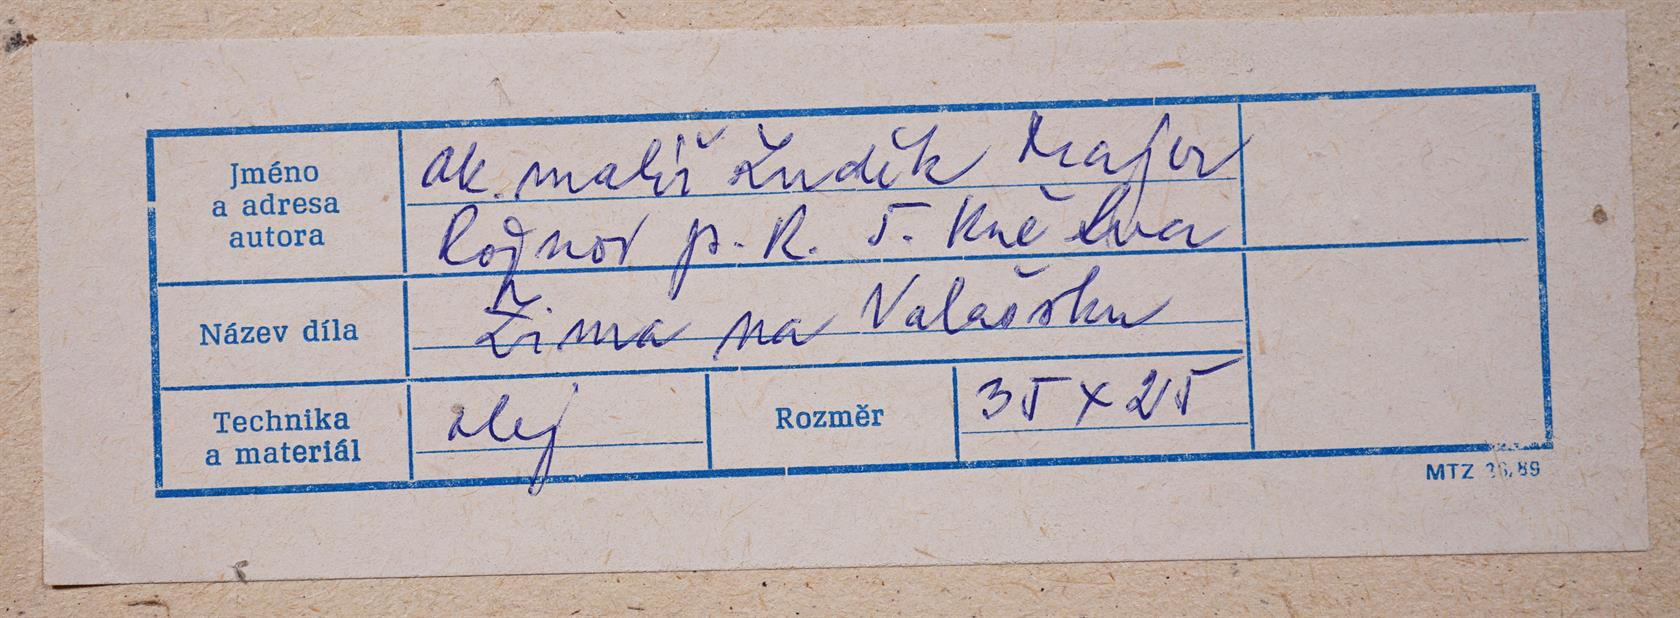 Jméno
a adresa
autora
ak. malíř Luděk Majer
Rožnov p. R. 5. Května
Název díla
Zima na Valašsku
Technika
a materiál
olej
Rozměr
35 x 25
MTZ 36.89